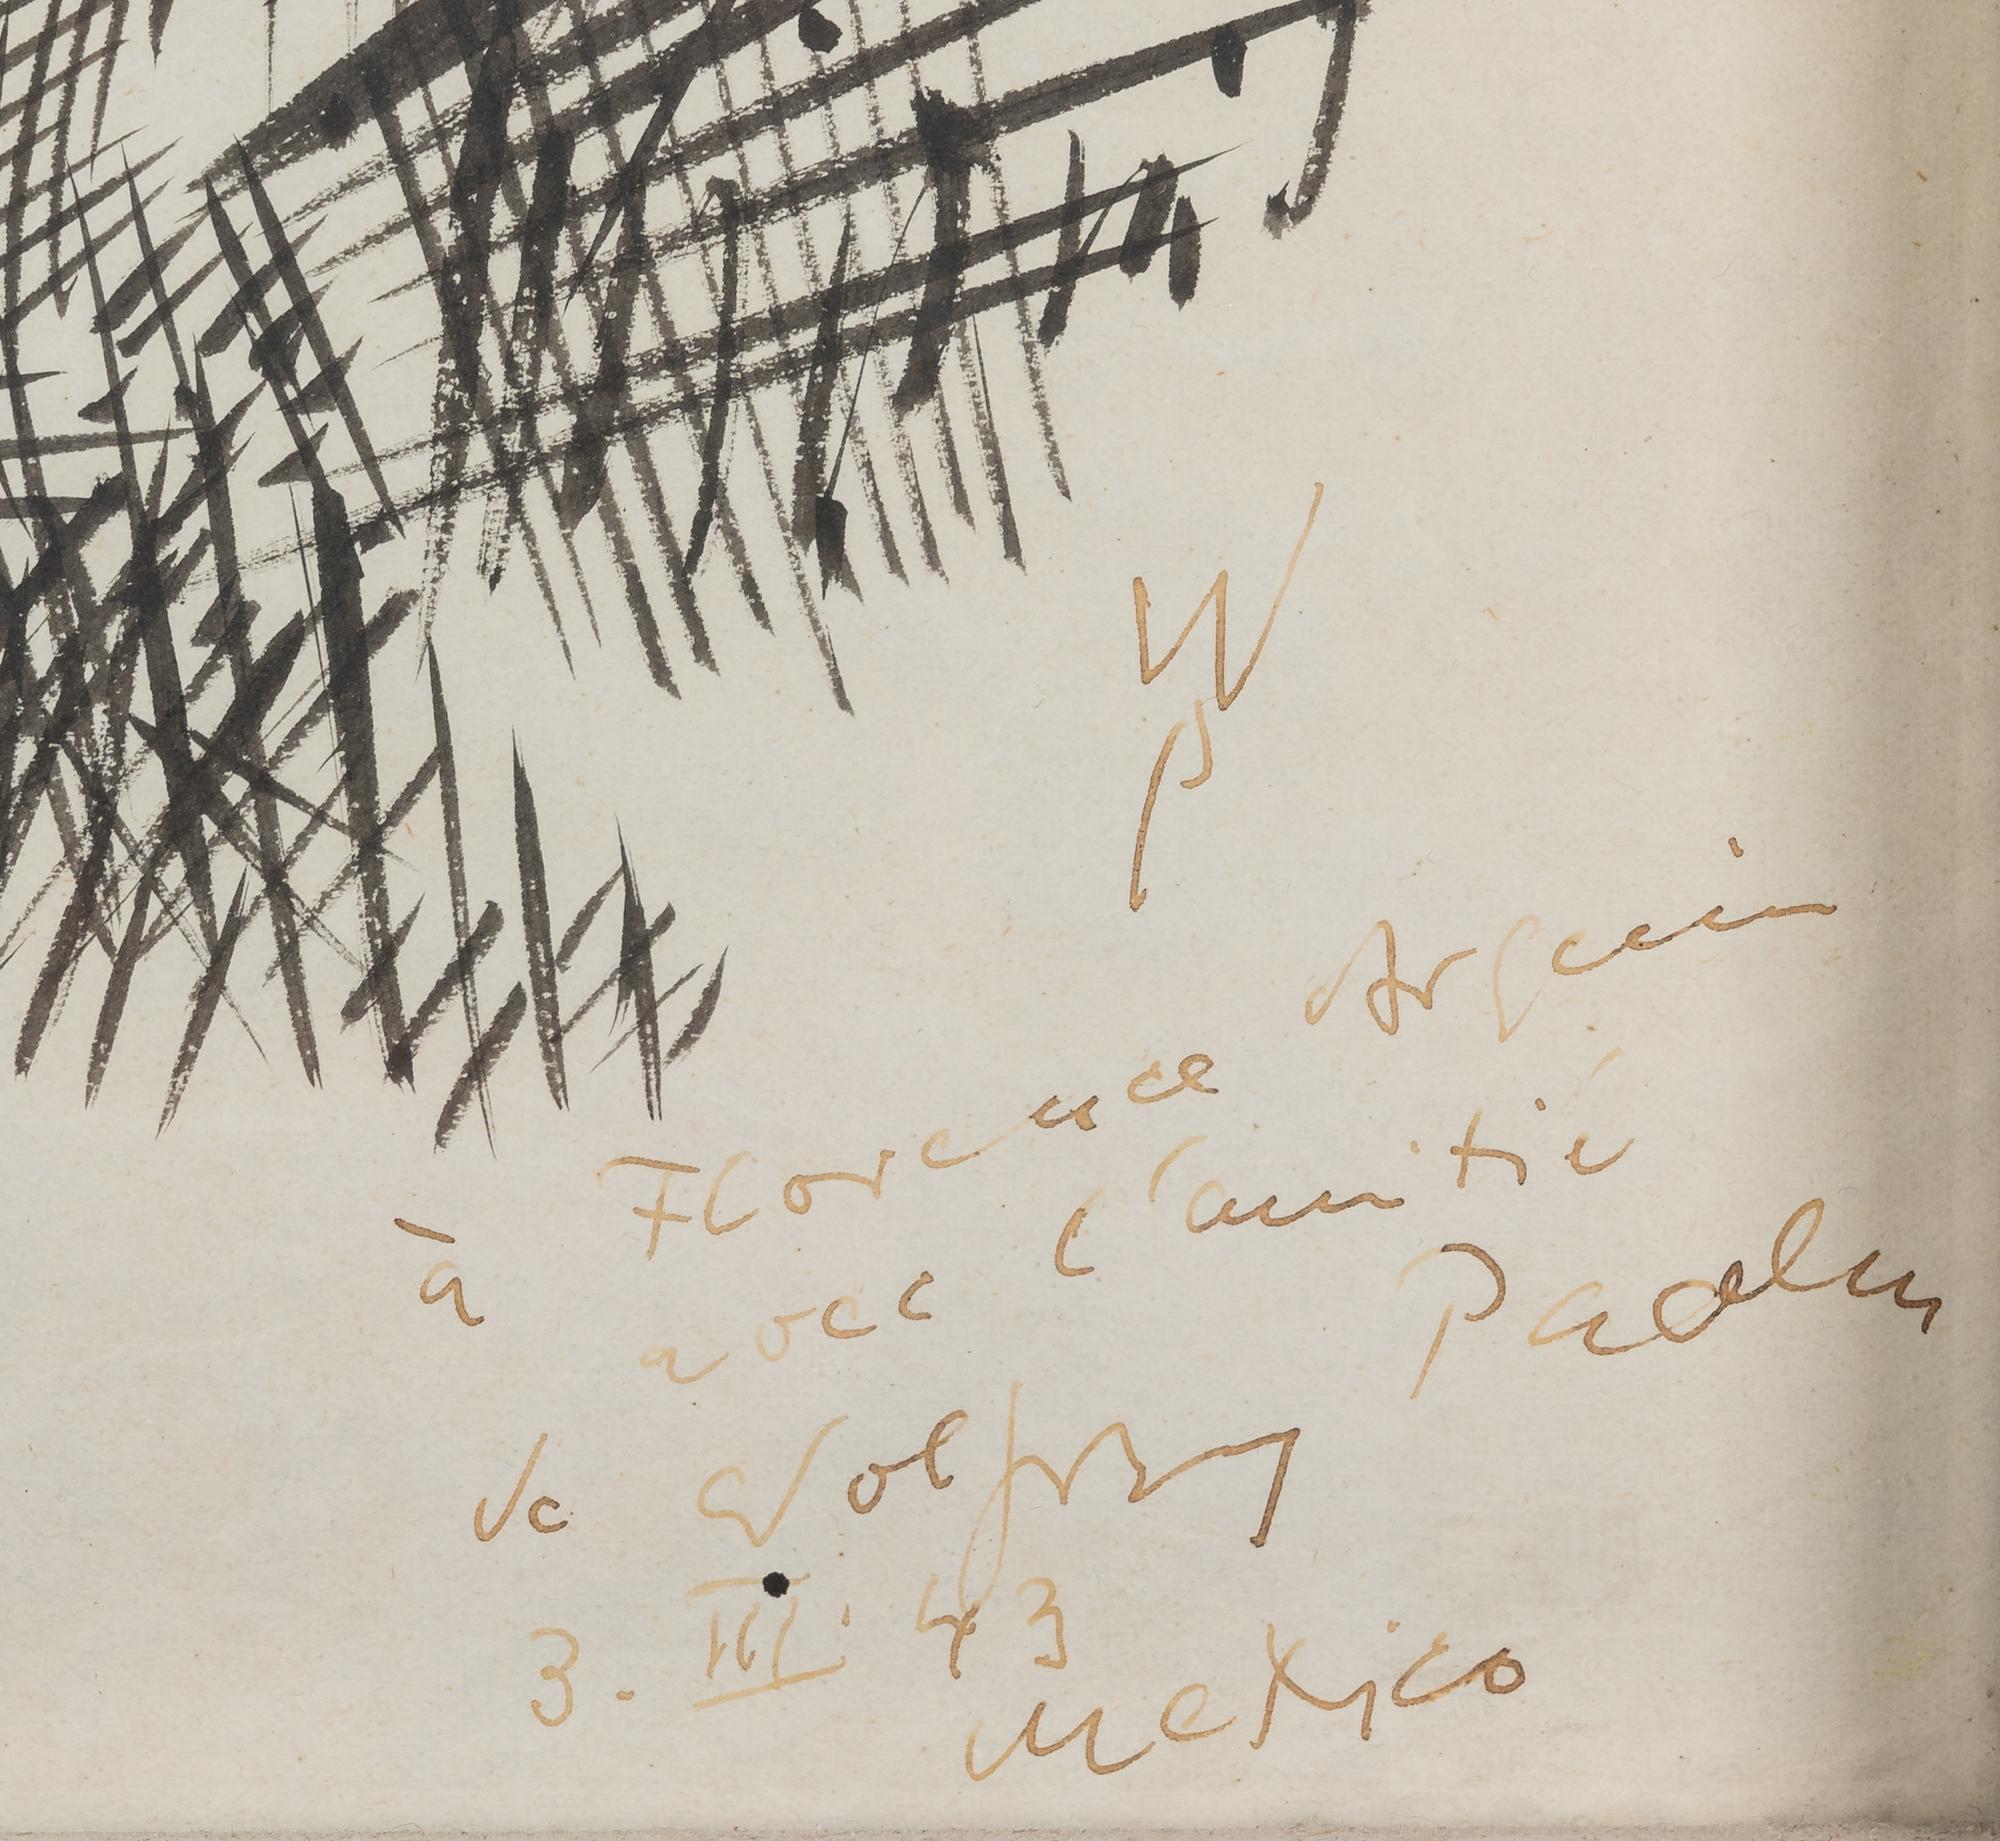 WP
à Florence Arquin
avec l'amitié
de Wolfgang Paalen
3. III. 43
Mexico